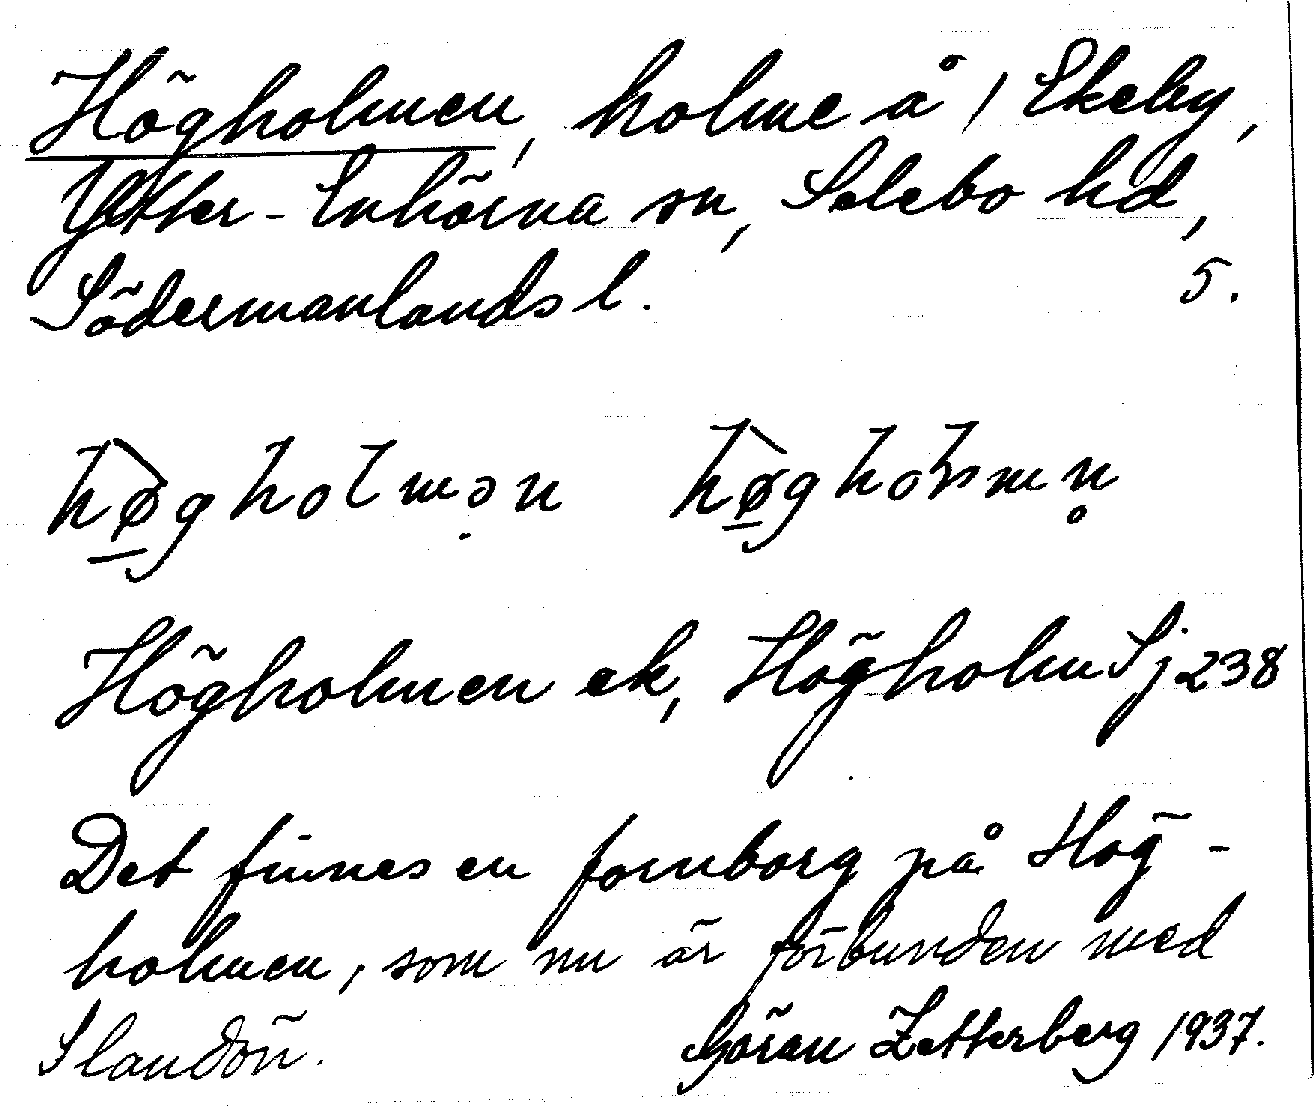 Högholmen, holme å / Ekeby,
Ytter-Enhörna sn, Selebo hd,
Södermanlands l. 5.
högholmən högholmn̥
Högholmen ek, Högholm Sj 238
Det finnes en fornborg på Hög-
holmen, som nu är förbunden med
Slandön.
Göran Zetterberg 1937.